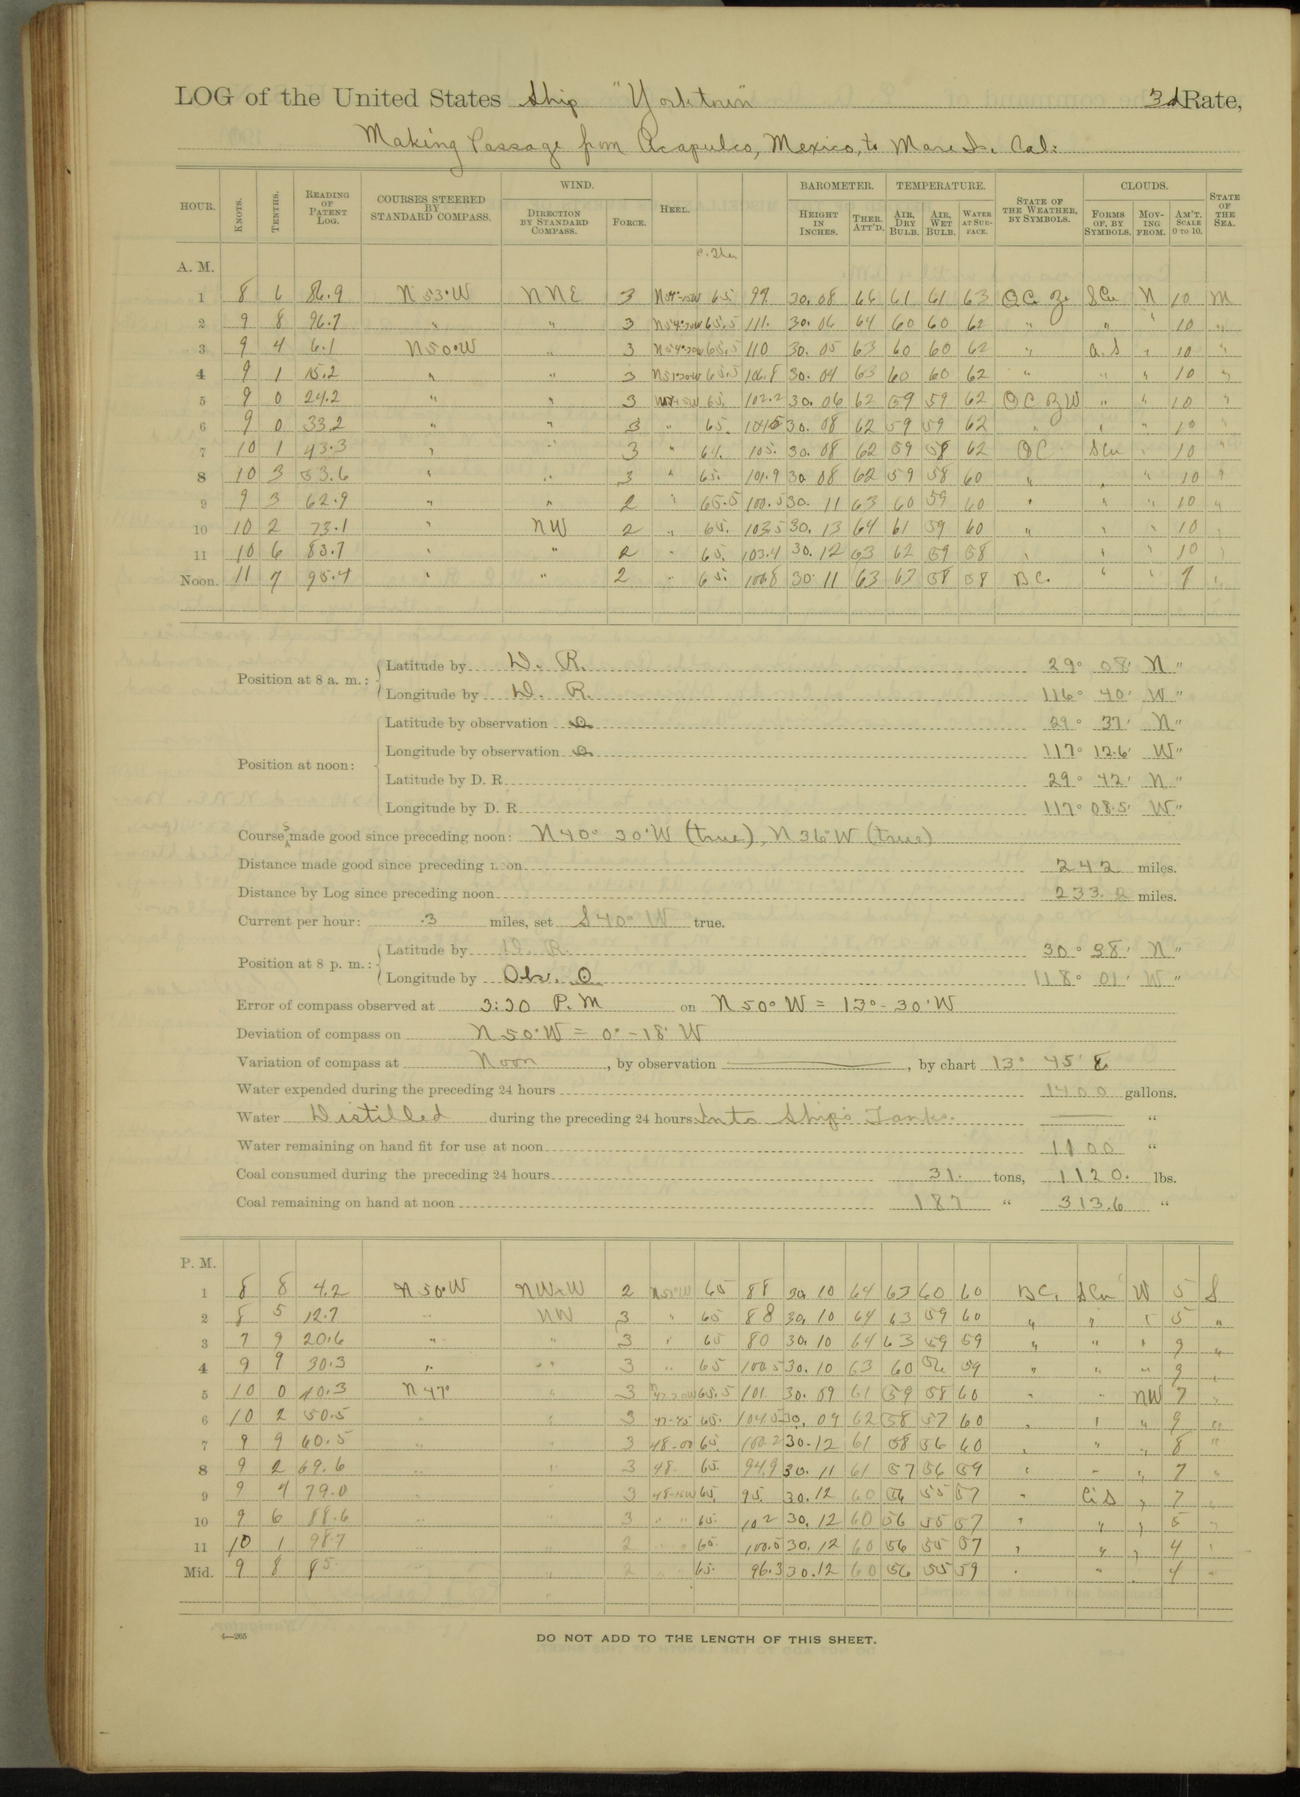 LOG of the United States Ship "Yorktown" 3d Rate,
Making Passage from Acapulco, Mexico, to Mare Is. Cal:
HOUR. KNOTS. TENTHS. READING OF PATENT LOG. COURSES STEERED BY STANDARD COMPASS. WIND. DIRECTION BY STANDARD COMPASS. FORCE. HEEL. BAROMETER. HEIGHT IN INCHES. THER. ATT'D. TEMPERATURE. AIR, DRY BULB. AIR, WET BULB. WATER AT SURFACE. STATE OF THE WEATHER, BY SYMBOLS. CLOUDS. FORMS OF, BY SYMBOLS. MOVING FROM. AM'T. SCALE 0 TO 10. STATE OF THE SEA.
A. M.
1 8 6 86.9 N 53° W NNE 3 65 99 30.08 66 61 61 63 O.C. Z. SCu N 10 M
2 9 8 96.7 " " 3 65.5 111. 30.06 64 60 60 62 " " " 10 "
3 9 4 6.1 N50°W " 3 65.5 110 30.05 63 60 60 62 " a.S " 10 "
4 9 1 15.2 " " 3 65.5 106.8 30.04 63 60 60 62 " " " 10 "
5 9 0 24.2 " " 3 65. 102.2 30.06 62 59 59 62 O C Z W " " 10 "
6 9 0 33.2 " " 3 " 65. 104.5 30.08 62 59 59 62 " " " 10 "
7 10 1 43.3 " " 3 " 64. 105. 30.08 62 59 58 62 O C SCu " 10 "
8 10 3 53.6 " " 3 " 65. 101.9 30.08 62 59 58 60 " " " 10 "
9 9 3 62.9 " " 2 " 65.5 100.5 30.11 63 60 59 60 " " " 10 "
10 10 2 73.1 " NW 2 " 65. 103.5 30.13 64 61 59 60 " " " 10 "
11 10 6 83.7 " " 2 " 65. 103.4 30.12 63 62 59 58 " " " 10 "
Noon. 11 7 95.4 " " 2 " 65. 106.8 30.11 63 63 58 58 B C. " " 9 "
Position at 8 a. m.: Latitude by D. R. 29° 08' N "
Longitude by D. R. 116° 40' W "
Position at noon: Latitude by observation 29° 37' N "
Longitude by observation 117° 12.6' W "
Latitude by D. R. 29° 42' N "
Longitude by D. R. 117° 08.5' W "
Courses made good since preceding noon: N 40° 30' W (true), N 36° W (true)
Distance made good since preceding noon 242 miles.
Distance by Log since preceding noon 233.2 miles.
Current per hour: .3 miles, set S 40° W true.
Position at 8 p. m.: Latitude by D. R. 30° 38' N "
Longitude by Obs. O 118° 01' W "
Error of compass observed at 3:30 P.M on N 50° W = 13° - 30' W
Deviation of compass on N 50° W = 0° - 18' W
Variation of compass at Noon, by observation , by chart 13° 45' E
Water expended during the preceding 24 hours 1400 gallons.
Water Distilled during the preceding 24 hours Into Ship's Tanks. "
Water remaining on hand fit for use at noon 1100 "
Coal consumed during the preceding 24 hours 31. tons, 1120. lbs.
Coal remaining on hand at noon 187 " 313.6 "
P. M.
1 8 8 4.2 N 50° W NWxW 2 65 88 30.10 64 63 60 60 B C. SCu W 5 S
2 8 5 12.7 " NW 3 " 65 88 30.10 64 63 59 60 " " " 5 "
3 7 9 20.6 " " 3 " 65 80 30.10 64 63 59 59 " " " 9 "
4 9 9 30.3 " " 3 " 65 100.5 30.10 63 60 56 59 " " " 9 "
5 10 0 40.3 N 47° " 3 65.5 101. 30.09 61 59 58 60 " " NW 7 "
6 10 2 50.5 " " 3 47-45 65. 104.5 30.09 62 58 57 60 " " " 9 "
7 9 9 60.5 " " 3 48-00 65. 100.2 30.12 61 58 56 60 " " " 8 "
8 9 2 69.6 " " 3 48. 65. 94.9 30.11 61 57 56 59 " " " 7 "
9 9 4 79.0 " 3 65. 95. 30.12 60 56 55 57 " CiS " 7 "
10 9 6 88.6 " " 3 " " 65. 102 30.12 60 56 55 57 " " " 5 "
11 10 1 98.7 " " 2 65. 100.5 30.12 60 56 55 57 " " " 4 "
Mid. 9 8 8.5 " 2 65. 96.3 30.12 60 56 55 59 " " " 4 "
4—265
DO NOT ADD TO THE LENGTH OF THIS SHEET.